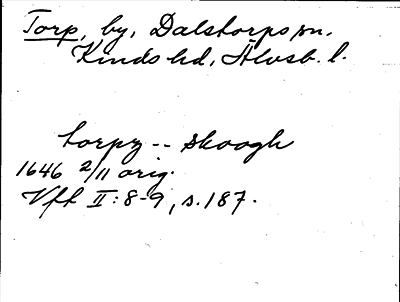 Torp, by, Dalstorps sn.
Kinds hd, Älvsb. l.
torpz -- skoogh
1646 2/11 orig.
Vfk II:8-9, s.187.